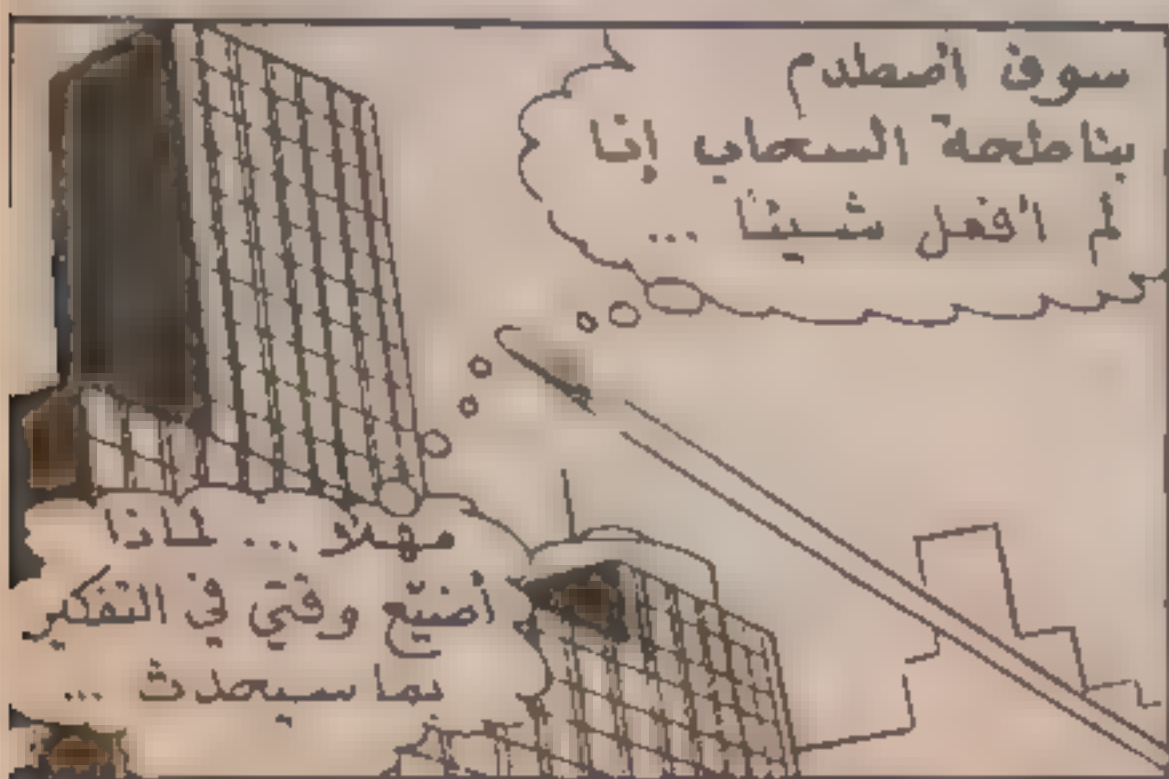 سوف أصطدم
بناطحة السحاب إذا
لم أفعل شيئاً ...
مهلاً ... لماذا
أضيّع وقتي في التفكير
بما سيحدث ...